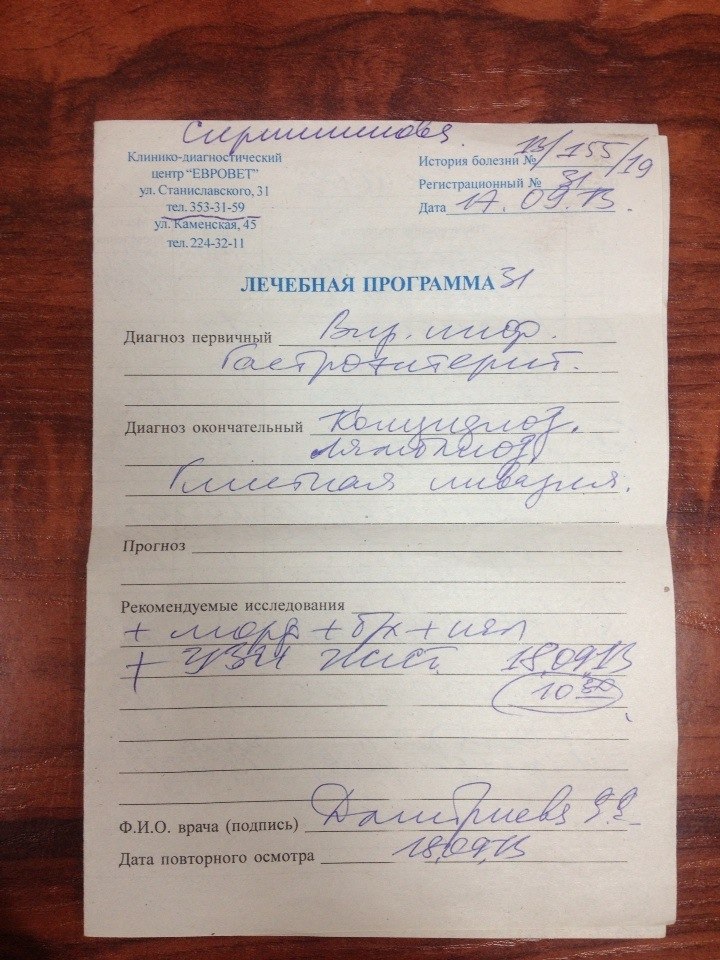 Клинико-диагностический
центр "ЕВРОВЕТ"
ул. Станиславского, 31
тел. 353-31-59
ул. Каменская, 45
тел. 224-32-11
История болезни № 13/155/19
Регистрационный № 31
Дата 17.09.13.
ЛЕЧЕБНАЯ ПРОГРАММА 31
Диагноз первичный Вир. инф.
Гастроэнтерит.
Диагноз окончательный Кокцидиоз.
Лямблиоз,
Глистная инвазия.
Прогноз
Рекомендуемые исследования
+ морф + б/х +
+ УЗИ 18.09.13
10 30
Ф.И.О. врача (подпись) Дмитриева
Дата повторного осмотра 18.09.13